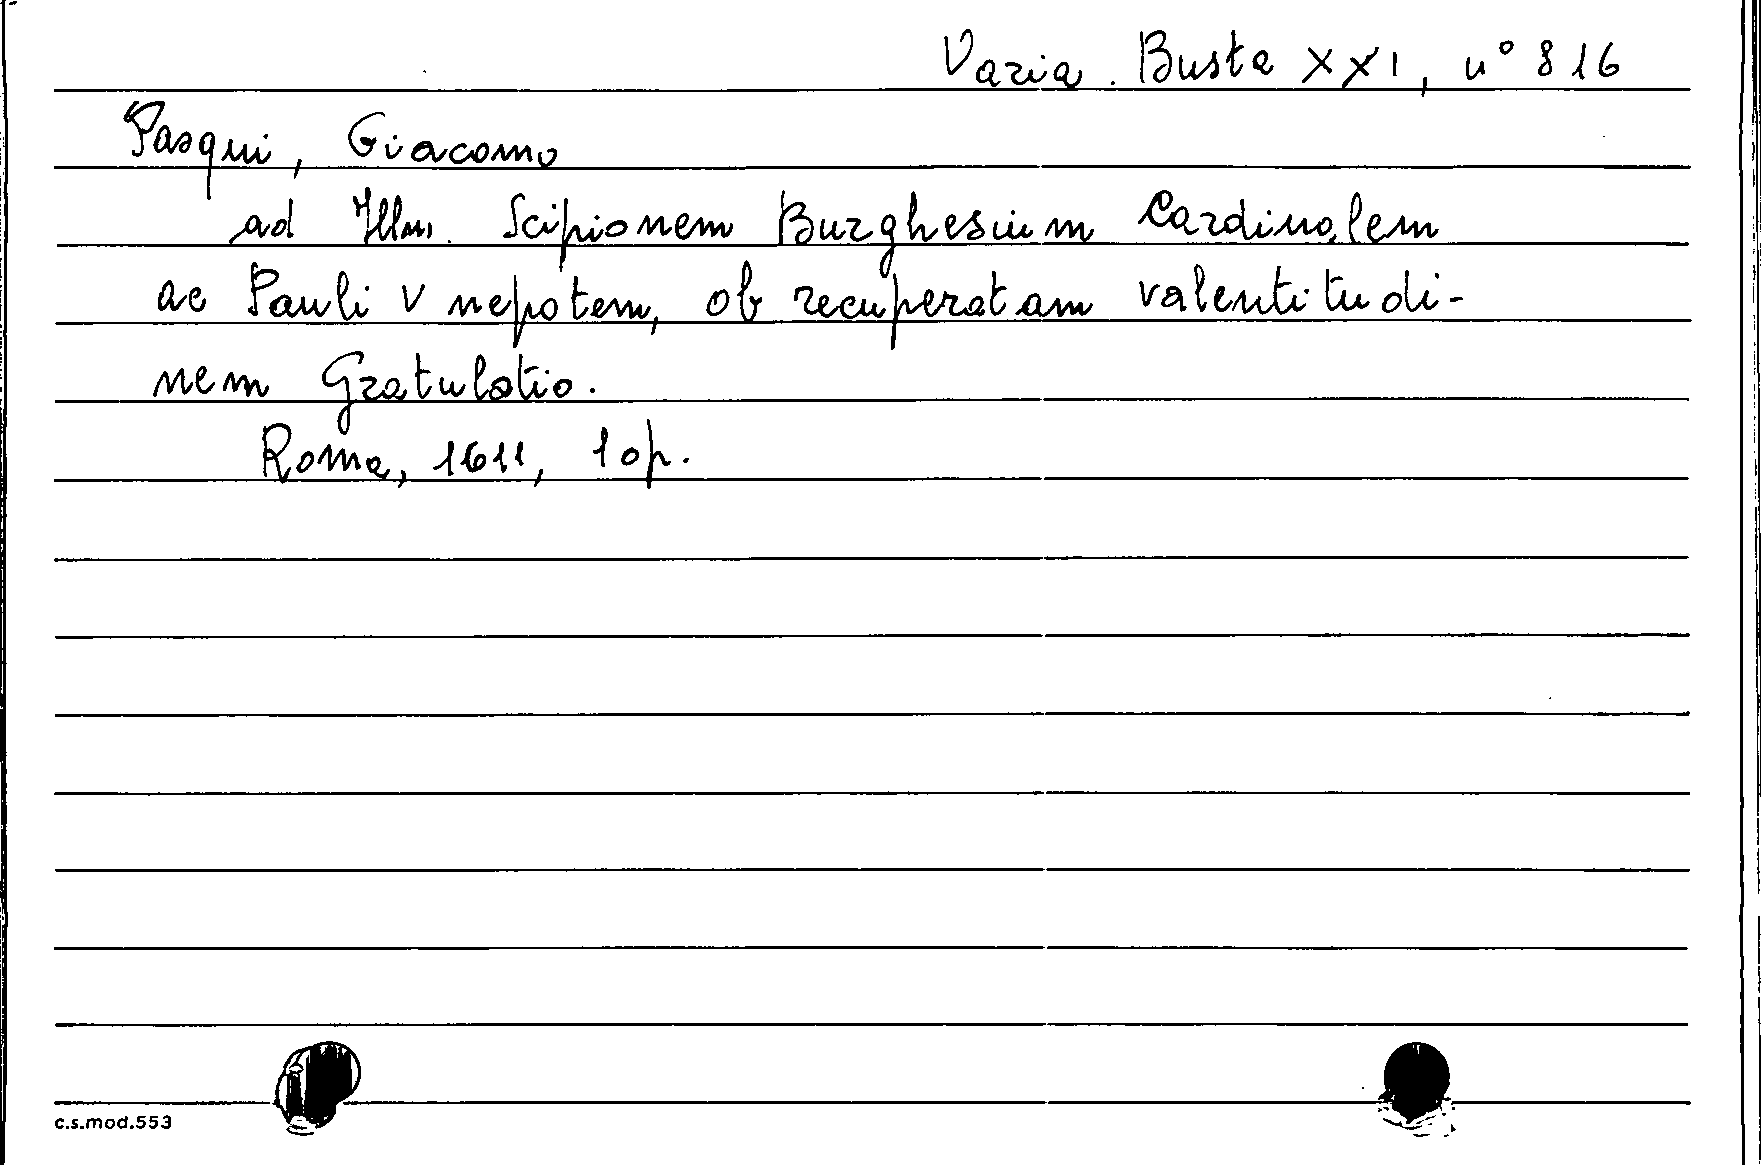 Varia. Busta XXI, n° 816
Pasqui, Giacomo
ad Illm. Scipionem Burghesium Cardinalem
ac Pauli V nepotem, ob recuperatam valentitudi-
nem Gratulatio.
Roma, 1611, 1 op.
c.s.mod.553